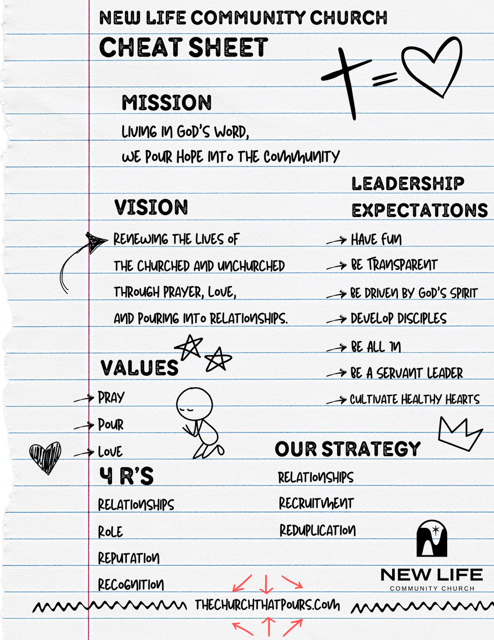 NEW LIFE COMMUNITY CHURCH
CHEAT SHEET
MISSION
LIVING IN GOD'S WORD,
WE POUR HOPE INTO THE COMMUNITY
VISION
RENEWING THE LIVES OF
THE CHURCHED AND UNCHURCHED
THROUGH PRAYER, LOVE,
AND POURING INTO RELATIONSHIPS.
LEADERSHIP
EXPECTATIONS
HAVE FUN
BE TRANSPARENT
BE DRIVEN BY GOD'S SPIRIT
DEVELOP DISCIPLES
BE ALL IN
BE A SERVANT LEADER
CULTIVATE HEALTHY HEARTS
VALUES
PRAY
POUR
LOVE
4 R'S
RELATIONSHIPS
ROLE
REPUTATION
RECOGNITION
OUR STRATEGY
RELATIONSHIPS
RECRUITMENT
REDUPLICATION
NEW LIFE
COMMUNITY CHURCH
THECHURCHTHATPOURS.COM